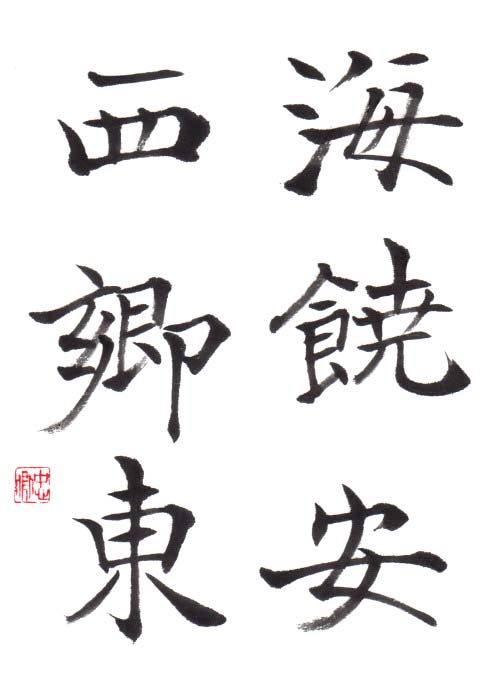 海饒安
西鄉東